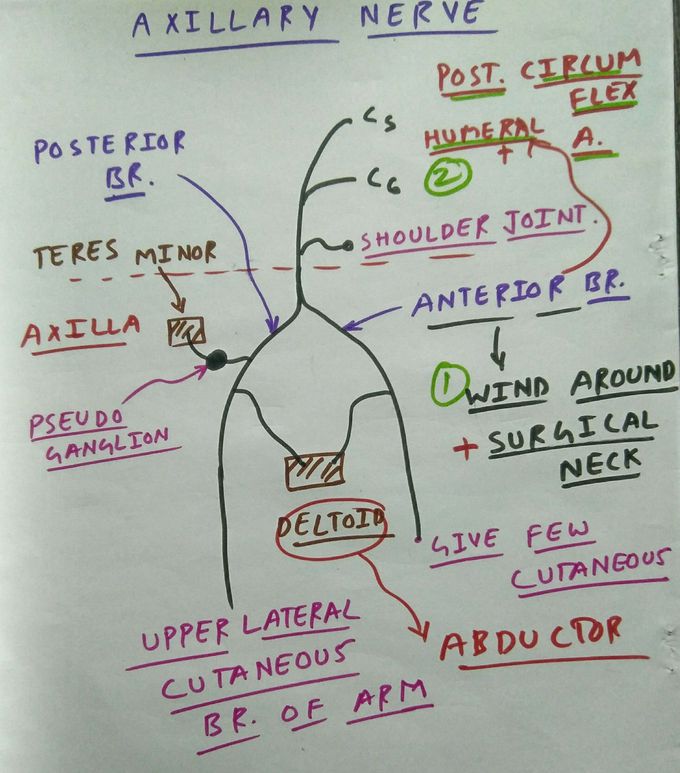 AXILLARY NERVE
POST. CIRCUM
FLEX
HUMERAL A.
+
2
C5
C6
POSTERIOR
BR.
SHOULDER JOINT.
TERES MINOR
ANTERIOR BR.
AXILLA
1 WIND AROUND
+ SURGICAL
NECK
PSEUDO
GANGLION
DELTOID
GIVE FEW
CUTANEOUS
ABDUCTOR
UPPER LATERAL
CUTANEOUS
BR. OF ARM